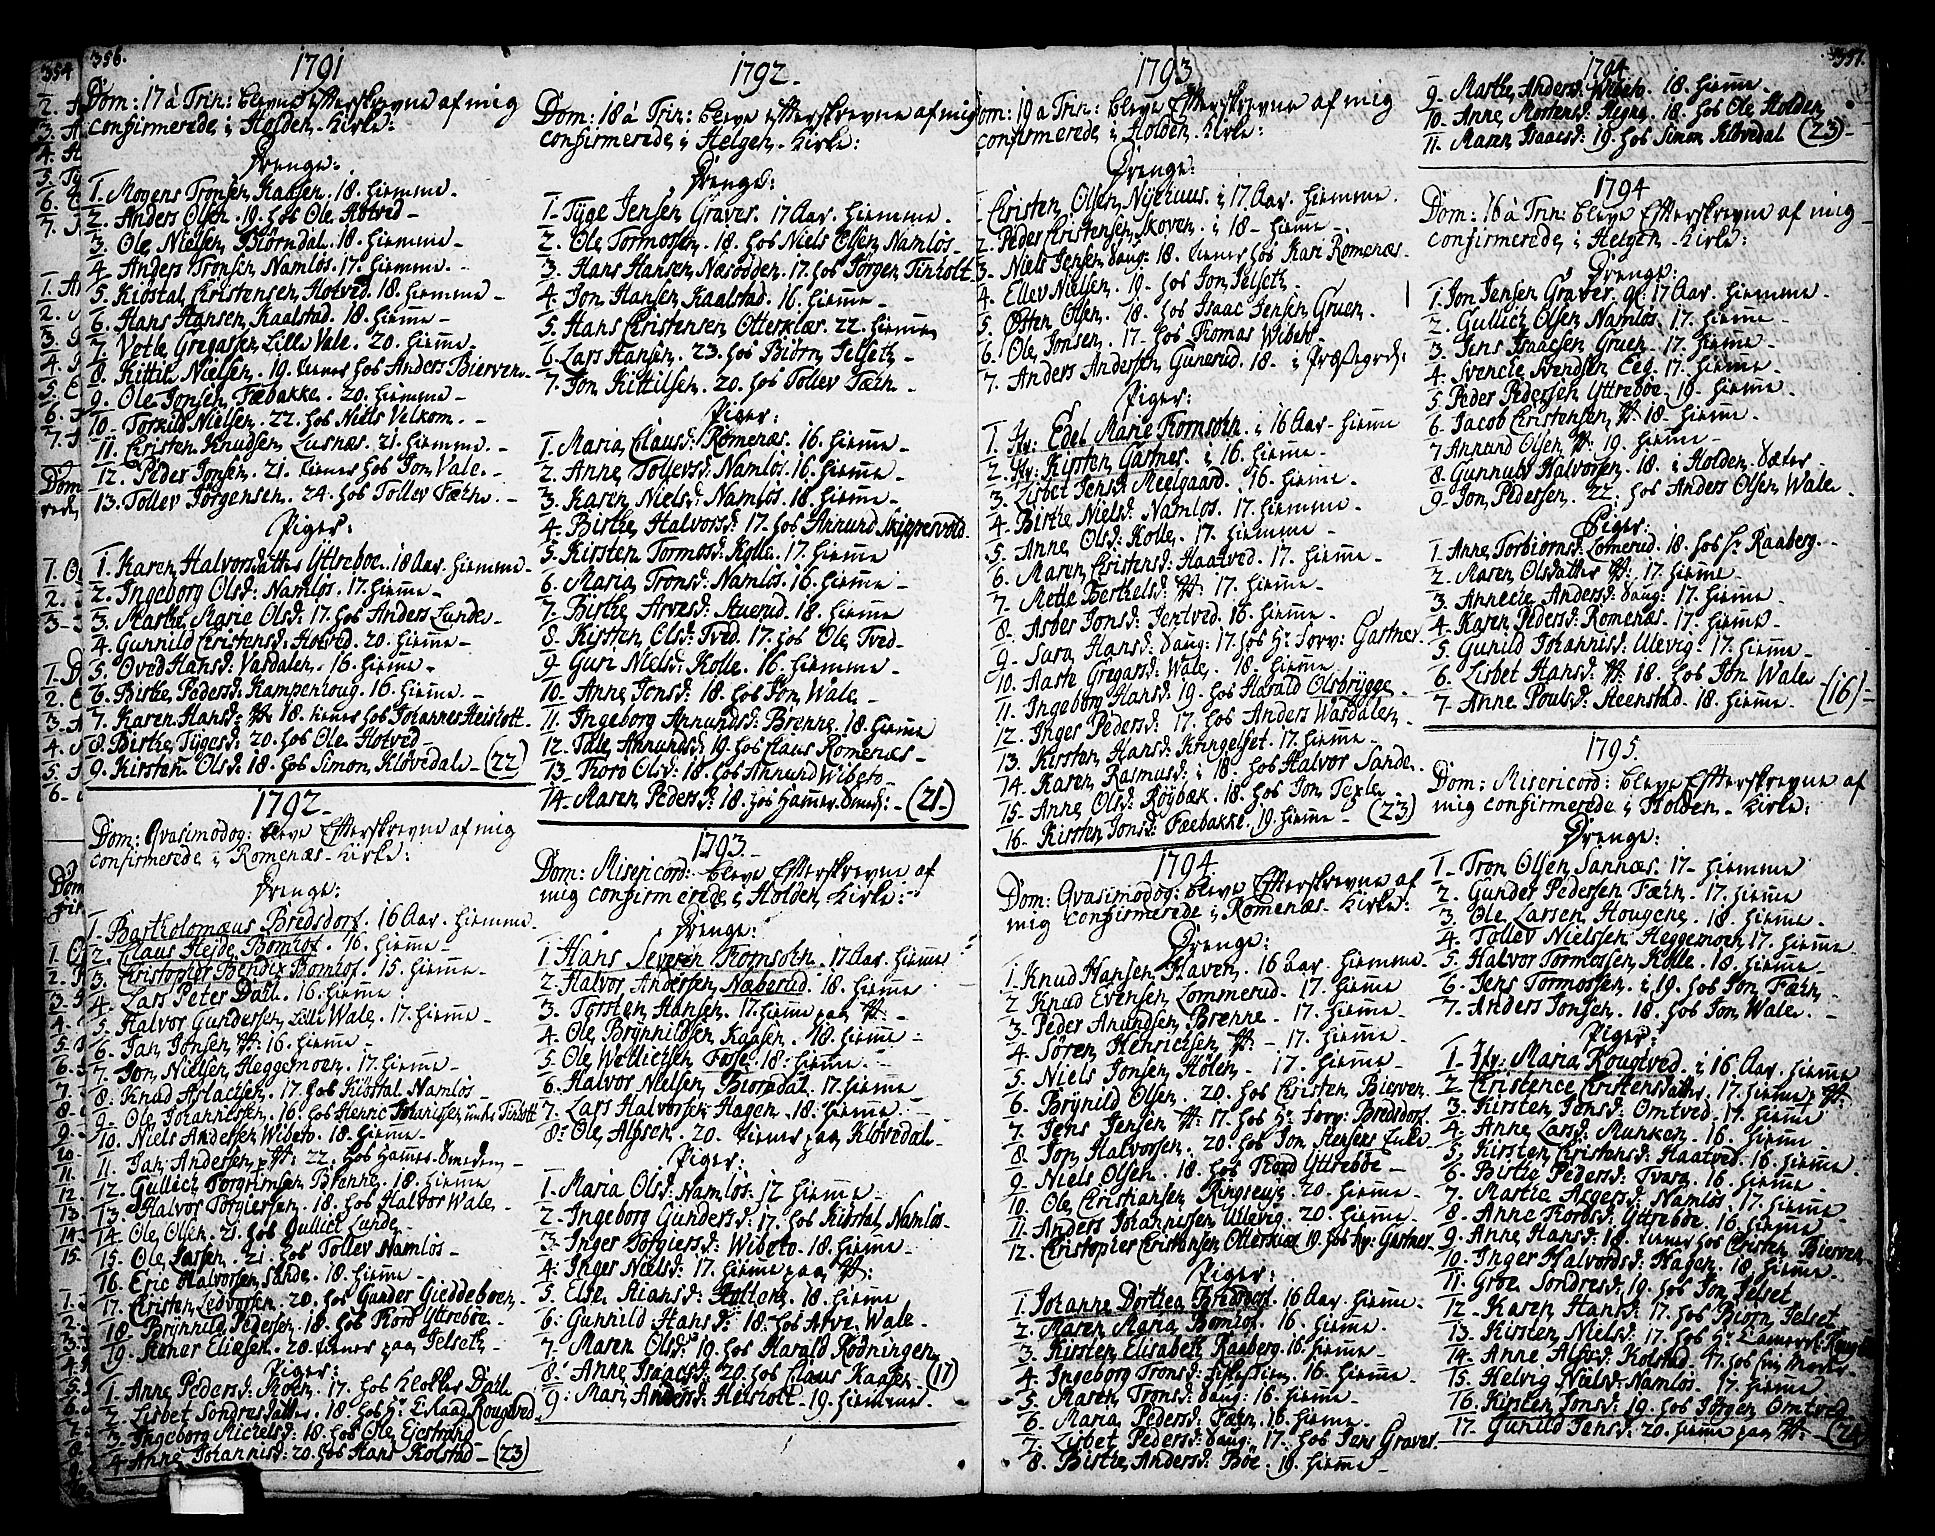 356.
1791
Dom: 17 à Trin: bleve Efterskrevne af mig
confirmerede i Holden Kirke:
Drenge:
1. Mogens Tronsen Kaasen. 18. hiemme.
2. Anders Olsen. 19. hos Ole Hotved
3. Ole Nielsen Biørndal. 18. hiemme
4. Anders Tronsen Namløs. 17. hiemme.
5. Kiøstal Christensen Hotved. 18. hiemme
6. Hans Hansen Kaalstad. 18. hieme
7. Vetle Gregassen Lille Vale. 20. hieme.
8. Kittil Nielsen. 19. tiener hos Anders Bierven
9. Ole Jonsen Fæbakke. 20. hiemme
10. Torkild Nielsen. 22. hos Niels Velkom.
11. Christen Knudsen Lusnæs. 21. hiemme.
12. Peder Jonsen. 21. tiener hos Jon Vale.
13. Tollev Jørgensen. 24. hos Tollev Færn.
Piger:
1. Karen Halvorsdatter Yttrebøe. 18 Aar. hiemme
2. Ingeborg Olsd: Namløs. 17. hieme
3. Marthe Marie Olsd: 17. hos Anders Lunde
4. Gunnild Christensd: Hotved. 20. hieme
5. Oved Hansd: Vasdalen. 16. hieme
6. Birthe Pedersd: Kampenhoug. 16. hieme.
7. Karen Hansd: 18. tiener hos Johannes Heisholt
8. Birthe Tygesd: 20. hos Ole Hotved
9. Kirsten Olsd: 18. hos Simon Kløvedal (22)
1792
Dom: Qvasimodog: bleve Efterskrevne af mig
confirmerede i Romenæs Kirke:
Drenge:
1. Bartholomæus Bredsdorf. 16 Aar. hiemme
2. Claus Hejde Bomhof. 16. hieme
3. Christopher Bendix Bomhof. 15. hieme.
4. Lars Peter Dahl. 16. hieme
5. Halvor Gundersen Lille Wale. 17. hieme.
6. Jan Jonsen 16. hieme
7. Jon Nielsen Heggemoen. 17. hieme
8. Knud Aslachsen. 17. hos Kiøstal Namløs
9. Ole Johannessen. 16 hos Henric Johannessen under Tinholt
10. Niels Andersen Wibeto. 18. hieme
11. Jan Andersen 22. hos Hamer Smeden
12. Gullich Torgrimsen Brenne. 18. hieme
13. Halvor Torgiersen. 18. hos Halvor Wale
14. Ole Olsen. 21. hos Gullich Lunde
15. Ole Jassen. 21. hos Tollev Namløs
16. Eric Halvorsen Sande. 18. hieme
17. Christen Ledvorsen. 20. hos Gunder Gieddeboen
18. Brynnild Pedersen. 18. hos Thord Yttrebøe.
19. Stener Eliesen. 20. tiener paa Jelseth
Piger:
1. Anne Pedersd: Moen. 17. hos Klokker Dahl
2. Lisbet Sondresdatter. 18 hos Hr Evlaad Rougtved
3. Ingeborg Michelsd: 18. hos Ole Eiestrand
4. Anne Johannisd: 20. hos Hans Kolstad (23)
1792
Dom: 18 à Trin: bleve Efterskrevne af mig
confirmerede i Helgen Kirke:
Drenge:
1. Tyge Jensen Graver. 17 Aar. hiemme.
2. Ole Tormossen. 18. hos Niels Olsen Namløs
3. Hans Hansen Næsodden. 17. hos Jørgen Tinholt
4. Jon Hansen Kaalstad. 16. hieme
5. Hans Christensen Otterklæs. 22. hieme
6. Lars Hansen. 23. hos Biørn Jelseth
7. Jon Kittilsen. 20. hos Tollev Færn
Piger:
1. Maria Clausd: Romenæs. 16. hieme
2. Anne Tollevsd: Namløs. 16. hieme
3. Karen Nielsd: Namløs. 18. hieme
4. Birthe Halvorsd: 17. hos Annund Skippervold
5. Kirsten Tormosd: Kolle. 17. hieme
6. Maria Tronsd: Namløs. 16. hieme
7. Birthe Arvesd: Stuerud. 18. hieme
8. Kirsten Olsd: Tved. 17. hos Ole Tved
9. Guri Nielsd: Kolle. 16. hiemme
10. Anne Jensd: 18. hos Jon Wale
11. Ingeborg Annundsd: Brenne. 18. hieme
12. Tale Annundsd: 19. hos Claus Romenæs
13. Thoro Olsd: 18. hos Annund Wibeto
14. Maren Pedersd: 18. hos Hamer Smed: (21)
1793
Dom: Misericord: bleve Efterskrevne af
mig confirmerede i Holden Kirke:
Drenge:
1. Hans Severin Thomsohn. 17 Aar. hieme
2. Halvor Andersen Næberud. 18. hieme
3. Torsten Hansen. 17. hieme paa
4. Ole Brynnildsen Kaasen. 18. hieme
5. Ole Wetlichsen Tvese. 18. hieme
6. Halvor Nielsen Biørndal. 17. hieme
7. Lars Halvorsen Hagen. 18. hieme
8. Ole Alfsen. 20. tiener paa Kløvedal
Piger:
1. Maria Olsd: Namløs. 17 hieme
2. Ingeborg Gundersd: 17. hos Kiøstal Namløs
3. Inger Torgiersd: Wibeto. 18. hieme
4. Inger Nielsd: 17. hieme paa
5. Else Hansd: Holtene. 18. hieme
6. Gunnild Hansd: 18. hos Arve Wale
7. Maren Olsd: 19. hos Harald Rødningen
8. Anne Isaacsd: 20. hos Claus Kaasen (17)
9. Mari Andersd: Heisholt. 19. hiemme.
1793
Dom: 19 à Trin: bleve Efterskrevne af mig
confirmerede i Holden Kirke:
Drenge:
1. Christen Olsen Nyehuus. i 17 Aar. hiemme
2. Peder Christensen Skoven. i 18 hieme
3. Niels Jensen Saug: 18. tiener hos Kari Romenæs.
4. Ellev Nielsen. 19. hos Jon Jelseth
5. Østen Olsen. 18. hos Isaac Jensen Gruen
6. Ole Jonsen. 17. hos Thomas Wibeto
7. Anders Andersen Gunerud. 18. i Præstegrd:
Piger:
1. Jfr: Edel Marie Thomsohn. i 16 Aar hieme
2. Jfr: Kirsten Gartner. i 16. hieme.
3. Lisbet Jensd: Meelgaard. 16. hieme
4. Birthe Nielsd: Namløs. 17. hiemme.
5. Anne Olsd: Kolle. 17. hiemme
6. Maren Christensd: Haatved. 17. hieme.
7. Mette Berthelsd: 17. hieme
8. Asber Jonsd: Jentved. 16. hieme
9. Sara Hansd: Saug: 17. hos Hr Forv: Gartner.
10. Aaste Gregarsd: Wale. 18. hieme
11. Ingeborg Hansd: 19. hos Harald Olsbrygge.
12. Inger Pedersd: 17. hos Anders Wasdalen
13. Kirsten Hansd: Kringelset. 17. hieme.
14. Karen Rasmusd: i 18. hos Halvor Sande.
15. Anne Olsd: Røybæk. 18. hos Jon Texle.
16. Kirsten Jonsd: Fæebakke. 19. hieme (23)
1794
Dom: Qvasimodog: bleve Efterskrevne af
mig confirmerede i Romenæs Kirke:
Drenge:
1. Knud Hansen Haven. 16 Aar. hiemme.
2. Knud Evensen Lommerud. 17. hieme
3. Peder Anundsen Brenne. 17. hieme
4. Søren Henrichsen 17. hieme
5. Niels Jonsen Hølen. 17. hieme.
6. Brynild Olsen. 20. hos Christen Bierven
7. Jens Jensen 17. hos Hr Forv: Bredsdorf.
8. Jon Halvorsen. 20. hos Jon Enke
9. Niels Olsen. 18. hos Thord Yttrebøe
10. Ole Christiansen Ringhuus. 20. hieme.
11. Anders Johannessen Ullevig. 20. hieme
12. Christopher Christensen Otterklæs 19. hos Hr. Gartner.
Piger:
1. Johanne Dorthea Bredsdorf. 16 Aar. hieme.
2. Maren Maria Bomhof. 16. hieme.
3. Kirsten Elisabeth Raaberg. 16. hieme
4. Ingeborg Tronsd: 16. hieme.
5. Maren Tronsd: Saug: 16. hieme
6. Maria Pedersd: Færn. 16. hieme
7. Lisbet Pedersd: Saug: 17. hos Jens Graver.
8. Birthe Andersd: Bøe. 19. hieme
357.
1794
9. Marthe Andersd: Wibeto. 18. hieme
10. Anne Mortensd: Hegna. 18. hos Ole Holden
11. Maren Isaacsd: 19. hos Simon Kløvedal (23)
1794
Dom: 16 à Trin: bleve Efterskrevne af mig
confirmerede i Helgen Kirke:
Drenge:
1. Jon Jensen Graver. 17 Aar. hiemme.
2. Gullich Olsen Namløs. 17. hieme
3. Jens Isaacsen Gruen. 17. hieme
4. Svenche Svendsen Eeg. 17. hieme
5. Peder Pedersen Yttrebøe. 19. hieme
6. Jacob Christensen 18. hieme
7. Annund Olsen 19. hieme
8. Gunnulv Halvorsen. 18. i Holden Sæter.
9. Jon Pedersen. 22. hos Anders Olsen Wale.
Piger:
1. Anne Torbiørnsd: Lomerud. 18. hos Hr Raaberg.
2. Maren Olsdatter 17. hieme
3. Annechie Andersd: Saug: 17. hieme
4. Karen Pedersd: Romenæs. 17. hieme
5. Gunild Johannisd: Ulevig. 17. hieme
6. Lisbet Hansd: 18. hos Jon Wale
7. Anne Poulsd: Steenstad. 18. hieme (16)
1795.
Dom: Misericord: bleve Efterskrevne af
mig confirmerede i Holden Kirke:
Drenge:
1. Tron Olsen Sannæs. 17 hieme
2. Gunder Pedersen Færn. 17. hieme
3. Ole Larsen Hougene. 18. hieme
4. Tollev Nielssen Heggemoen 17. hieme
5. Halvor Tormossen Kolle. 18. hieme
6. Jens Tormossen. i 19. hos Jon Færn
7. Anders Jonsen. 18. hos Jon Wale.
Piger:
1. Jfr: Maria Rougtved. i 16 Aar. hieme
2. Christence Christensdatter. 17. hieme
3. Kirsten Jensd: Omtved. 17. hieme
4. Anne Larsd: Munken. 16. hieme
5. Kirsten Christensd: Haatved. 16. hieme.
6. Birthe Pedersd: Tvara. 16. hieme
7. Marthe Asgersd: Namløs. 17. hieme
8. Anne Thorsd: Yttrebøe. 16. hieme
9. Anne Hansd: 18. tiener hos Christen Bierven
10. Inger Halvorsd: Hagen. 18. hieme.
11. Groe Sondresd: 19. hos Jon Jelset
12. Karen Hansd: 17. hos Biørn Jelset
13. Kirsten Nielsd: 17. hos Hr
14. Anne Alfsd: Kolstad. 17. hos sin Moder
15. Helvig Nielsd: Namløs. 17. hieme
16. Kirsten Jonsd: 19. hos Jørgen Omtved
17. Gunild Jensd: 20. hieme paa (24)